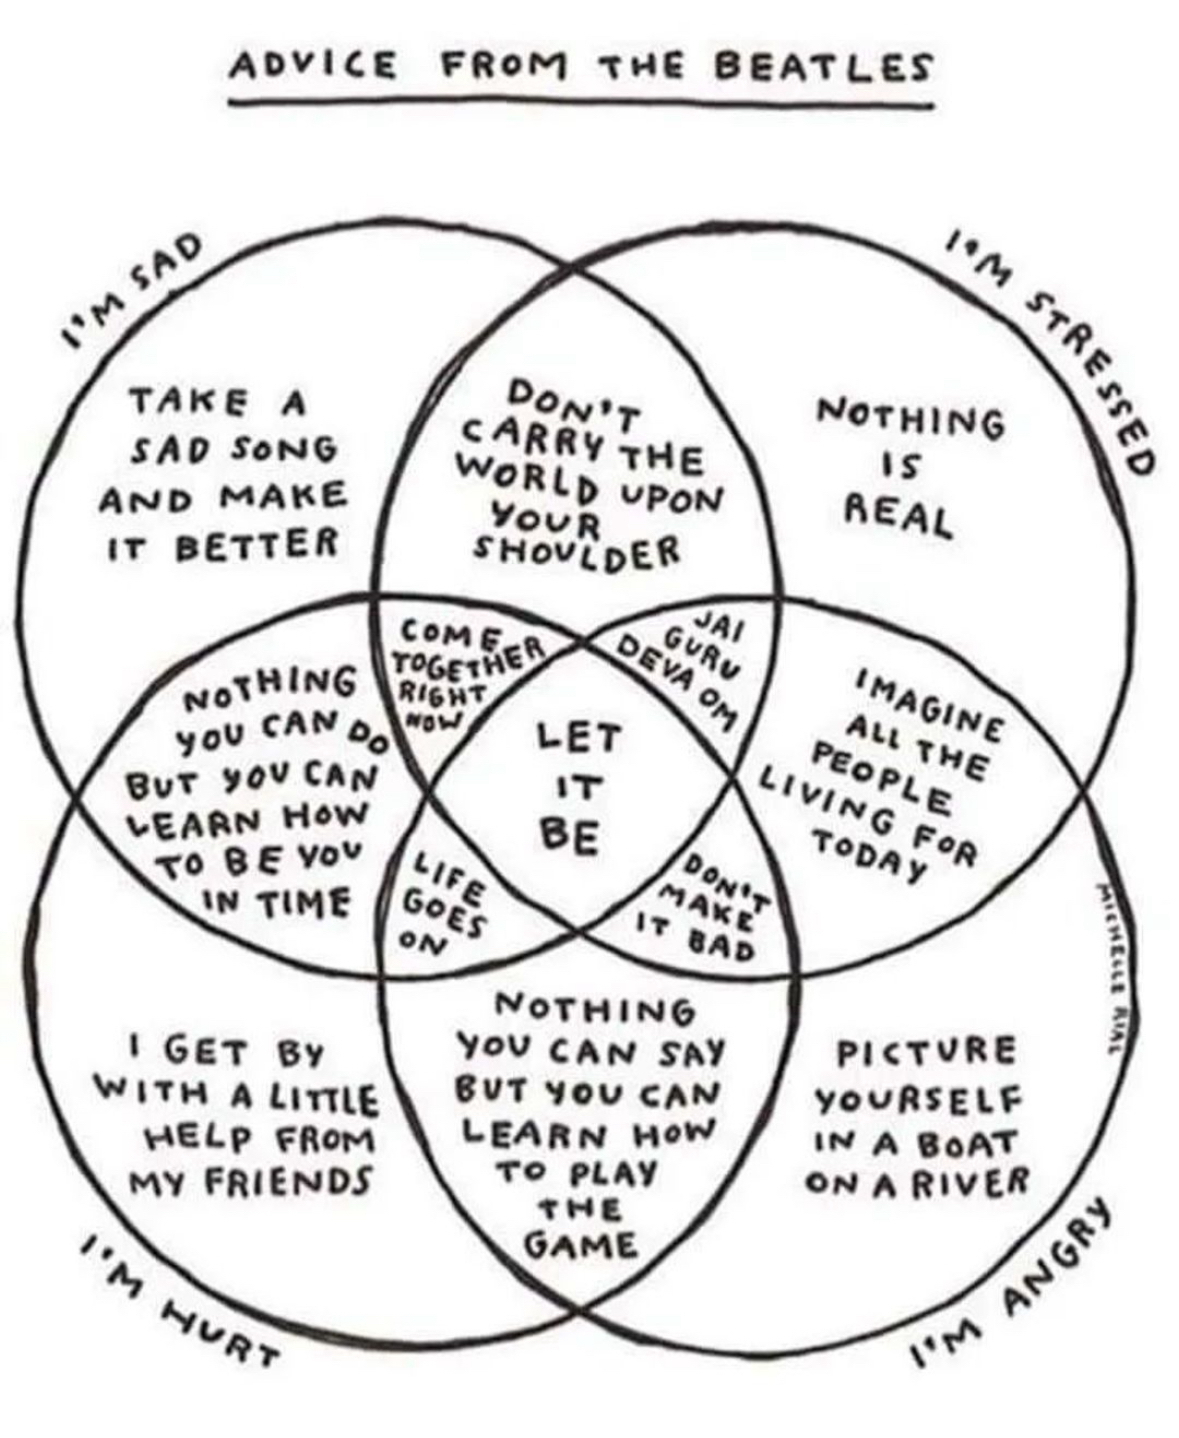 ADVICE FROM THE BEATLES
I'M SAD
I'M STRESSED
TAKE A
SAD SONG
AND MAKE
IT BETTER
DON'T
CARRY THE
WORLD UPON
YOUR
SHOULDER
NOTHING
IS
REAL
COME
TOGETHER
RIGHT
NOW
JAI
GURU
DEVA OM
NOTHING
YOU CAN DO
BUT YOU CAN
LEARN HOW
TO BE YOU
IN TIME
LET
IT
BE
IMAGINE
ALL THE
PEOPLE
LIVING FOR
TODAY
LIFE
GOES
ON
DON'T
MAKE
IT BAD
MICHELLE RIAL
I GET BY
WITH A LITTLE
HELP FROM
MY FRIENDS
NOTHING
YOU CAN SAY
BUT YOU CAN
LEARN HOW
TO PLAY
THE
GAME
PICTURE
YOURSELF
IN A BOAT
ON A RIVER
I'M HURT
I'M ANGRY